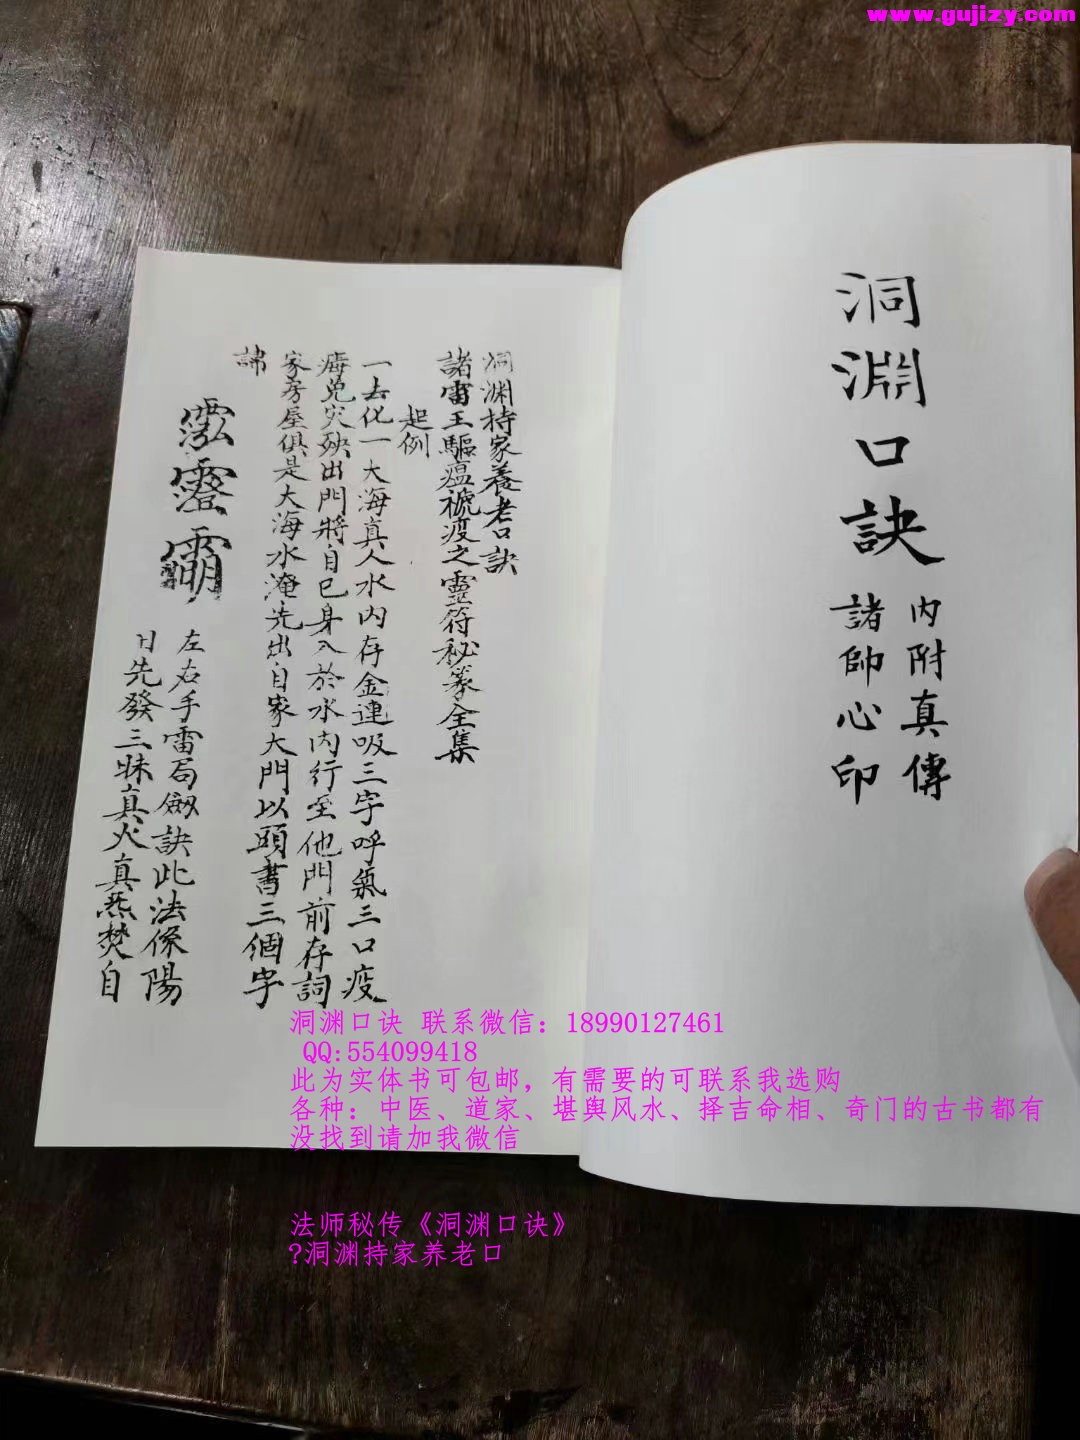 www.gujizy.com
洞淵口訣
內附真傳
諸帥心印
洞渊持家養老口訣
諸雷王驅瘟𧝞疫之靈符秘篆全集
起例
一去化一大海真人水內存金連吸三字呼氣三口疫
痗免灾殃出門將自己身入於水內行至他門前存詞
家房屋俱是大海水淹先出自家大門以頭書三個字
諱
左右手雷局劔訣此法係陽
日先發三昧真火真炁焚自
洞渊口诀 联系微信：18990127461
QQ:554099418
此为实体书可包邮，有需要的可联系我选购
各种：中医、道家、堪舆风水、择吉命相、奇门的古书都有
没找到请加我微信
法师秘传《洞渊口诀》
?洞渊持家养老口